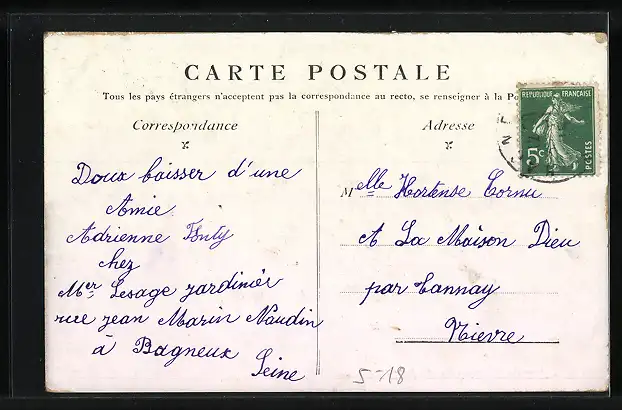 CARTE POSTALE
Tous les pays étrangers n'acceptent pas la correspondance au recto, se renseigner à la
Correspondance
Doux baisser d'une
Amie
Adrienne
chez
Mer Lesage jardinier
rue jean Marin Naudin
à Bagneux
Seine
Adresse
Melle Hortense Cornu
A La Maison Dieu
par Tannay
Nievre
REPUBLIQUE FRANÇAISE
5c
POSTES
5-18